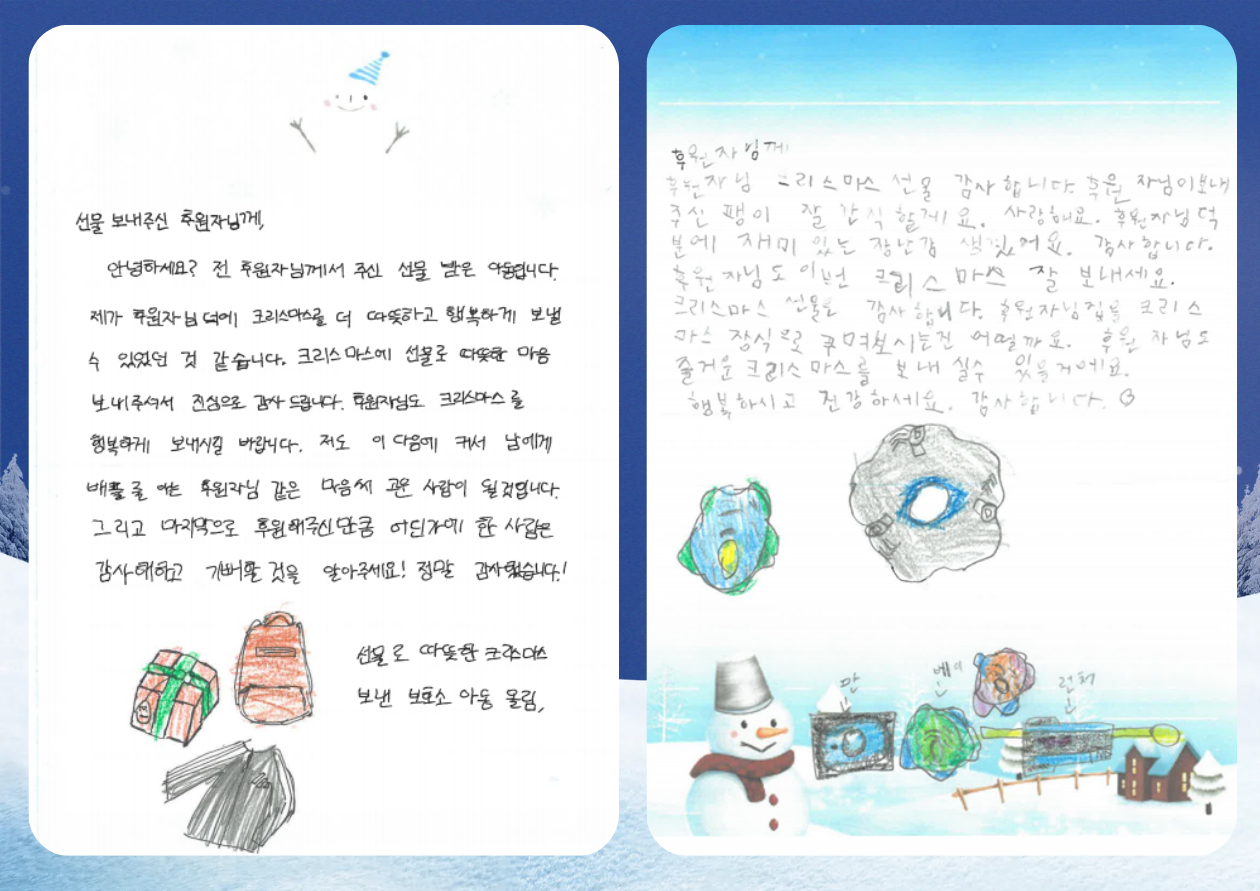 선물 보내주신 후원자님께,
안녕하세요? 전 후원자님께서 주신 선물 받은 아동입니다.
제가 후원자님 덕에 크리스마스를 더 따뜻하고 행복하게 보낼
수 있었던 것 같습니다. 크리스마스에 선물로 따뜻한 마음
보내주셔서 진심으로 감사 드립니다. 후원자님도 크리스마스를
행복하게 보내시길 바랍니다. 저도 이 다음에 커서 남에게
배풀 줄 아는 후원자님 같은 마음씨 고운 사람이 될것입니다.
그리고 마지막으로 후원해주신만큼 어딘가에 한 사람은
감사해하고 기뻐할 것을 알아주세요! 정말 감사했습니다!
선물로 따뜻한 크리스마스
보낸 보호소 아동 올림,
후원자님께
후원자님 크리스마스 선물 감사합니다. 후원자님이 보내
주신 팽이 잘 간직할게요. 사랑해요. 후원자님 덕
분에 재미있는 장난감 생겼어요. 감사합니다.
후원자님도 이번 크리스마스 잘 보내세요.
크리스마스 선물을 감사합니다. 후원자님집을 크리스
마스 장식으로 꾸며보시는건 어떨까요. 후원자님도
즐거운 크리스마스를 보내실수 있을거에요.
행복하시고 건강하세요. 감사합니다.
판 베이 런처